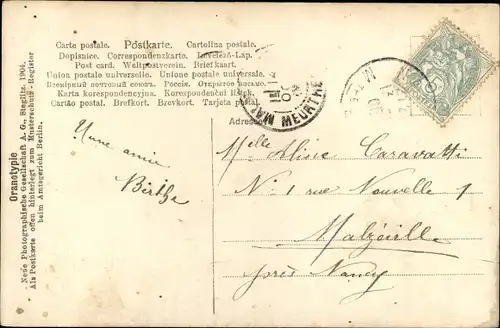 Carte postale. Postkarte. Cartolina postale.
Dopisnice. Correspondenzkarte. Levelező-Lap.
Post card. Weltpostverein. Briefkaart.
Union postale universelle. Unione postale universale.
Всемірный почтовый союзъ. Россія. Открытое письмо.
Karta korespondencyjna. Korespondenční lístek.
Cartão postal. Brefkort. Brevkort. Tarjeta postal.
Adresse
MEURTHE
Une amie
Berthe
Melle Aline Caravatti
No 1 rue Nouvelle 1
Malzéville
près Nancy
Granotypie
Neue Photographische Gesellschaft A. G., Steglitz. 1904.
Als Postkarte offen hinterlegt zum Musterschutz-Register
beim Amtsgericht Berlin.